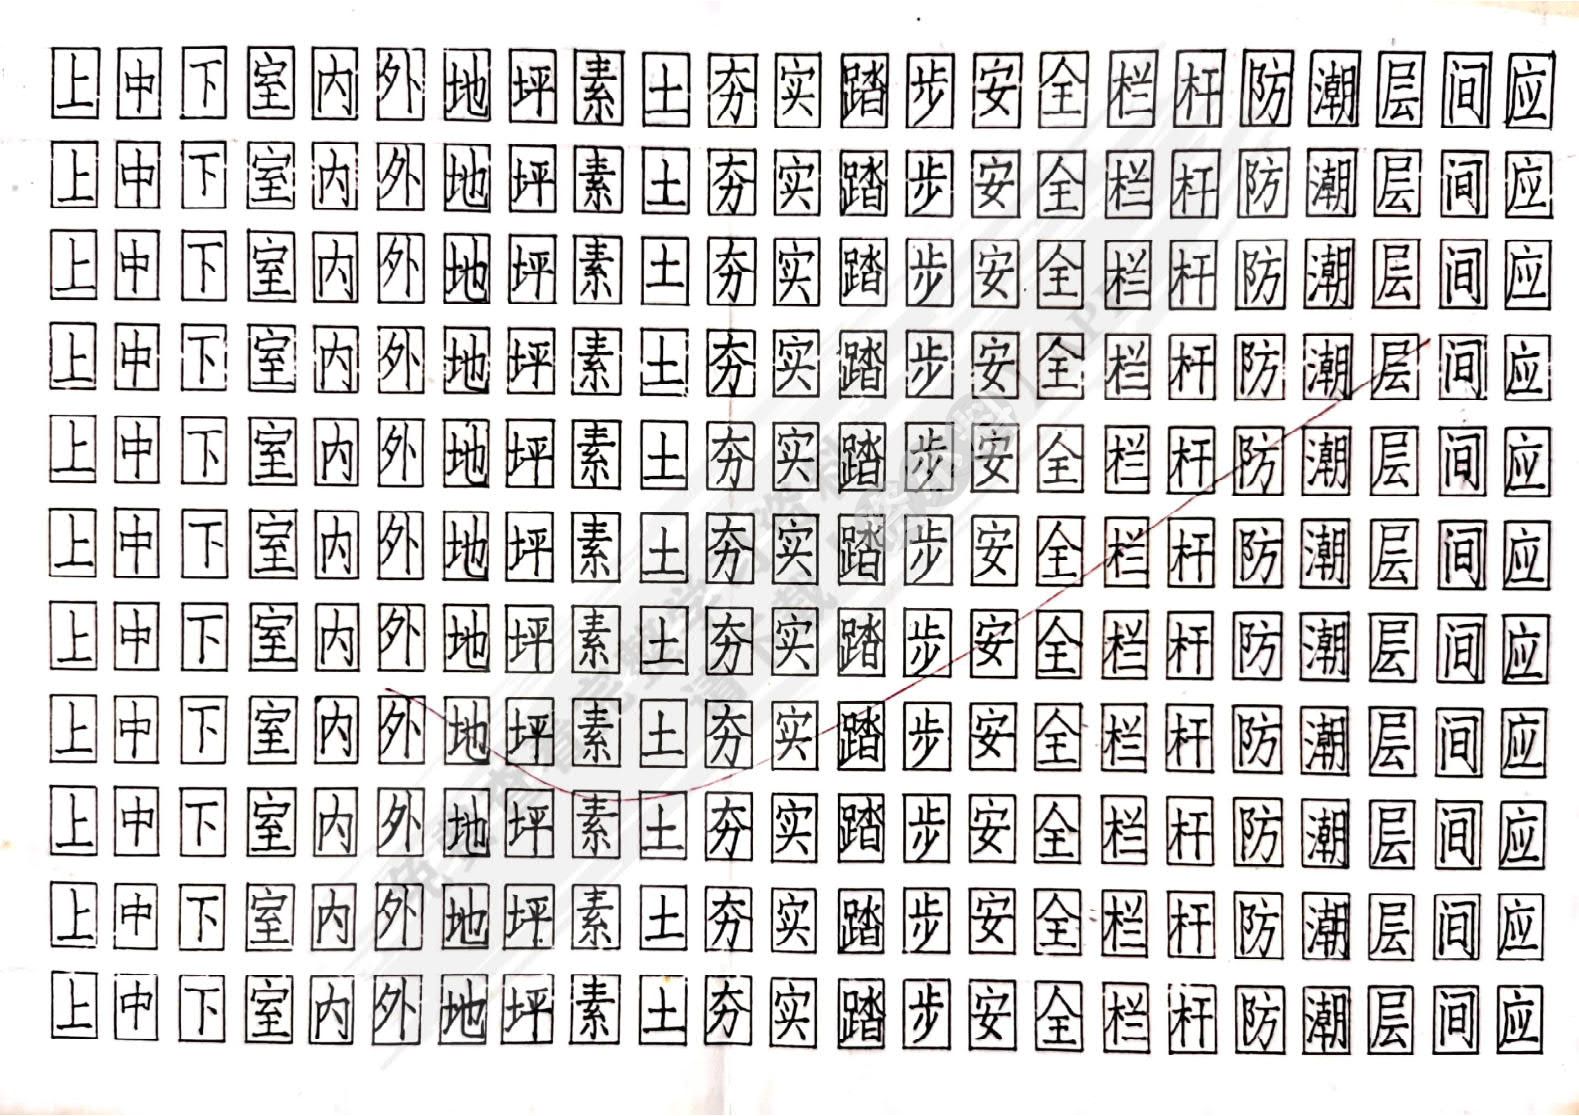 上中下室内外地坪素土夯实踏步安全栏杆防潮层间应
上中下室内外地坪素土夯实踏步安全栏杆防潮层间应
上中下室内外地坪素土夯实踏步安全栏杆防潮层间应
上中下室内外地坪素土夯实踏步安全栏杆防潮层间应
上中下室内外地坪素土夯实踏步安全栏杆防潮层间应
上中下室内外地坪素土夯实踏步安全栏杆防潮层间应
上中下室内外地坪素土夯实踏步安全栏杆防潮层间应
上中下室内外地坪素土夯实踏步安全栏杆防潮层间应
上中下室内外地坪素土夯实踏步安全栏杆防潮层间应
上中下室内外地坪素土夯实踏步安全栏杆防潮层间应
上中下室内外地坪素土夯实踏步安全栏杆防潮层间应
免费查看完整学习资料
请下载